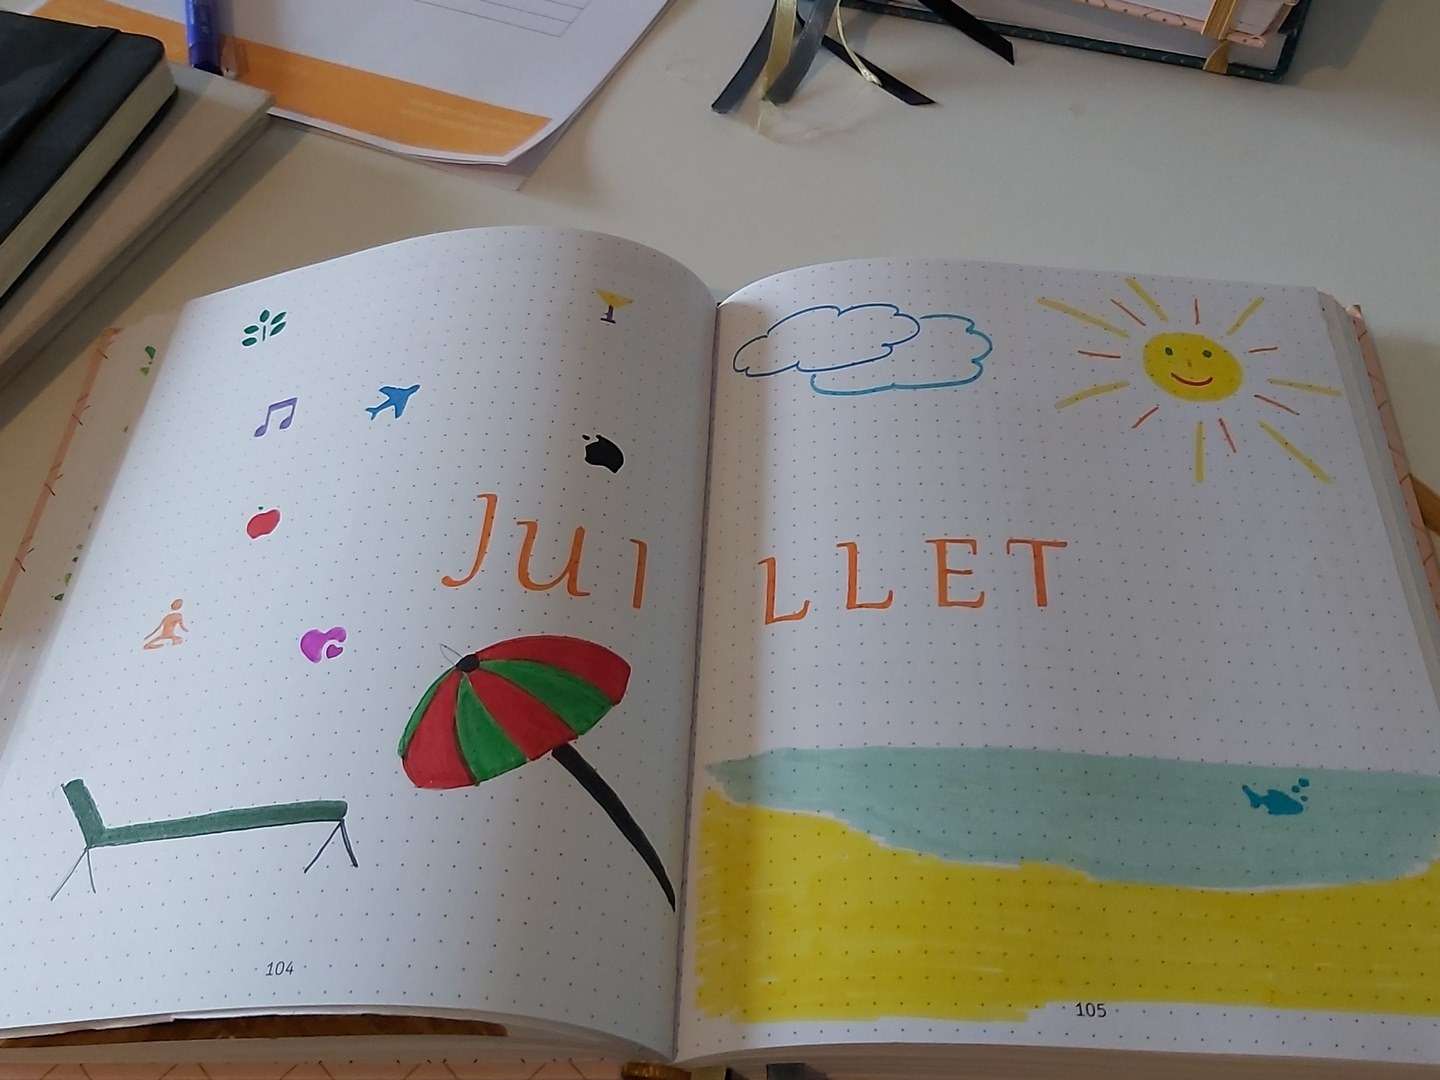 JUILLET
104
105